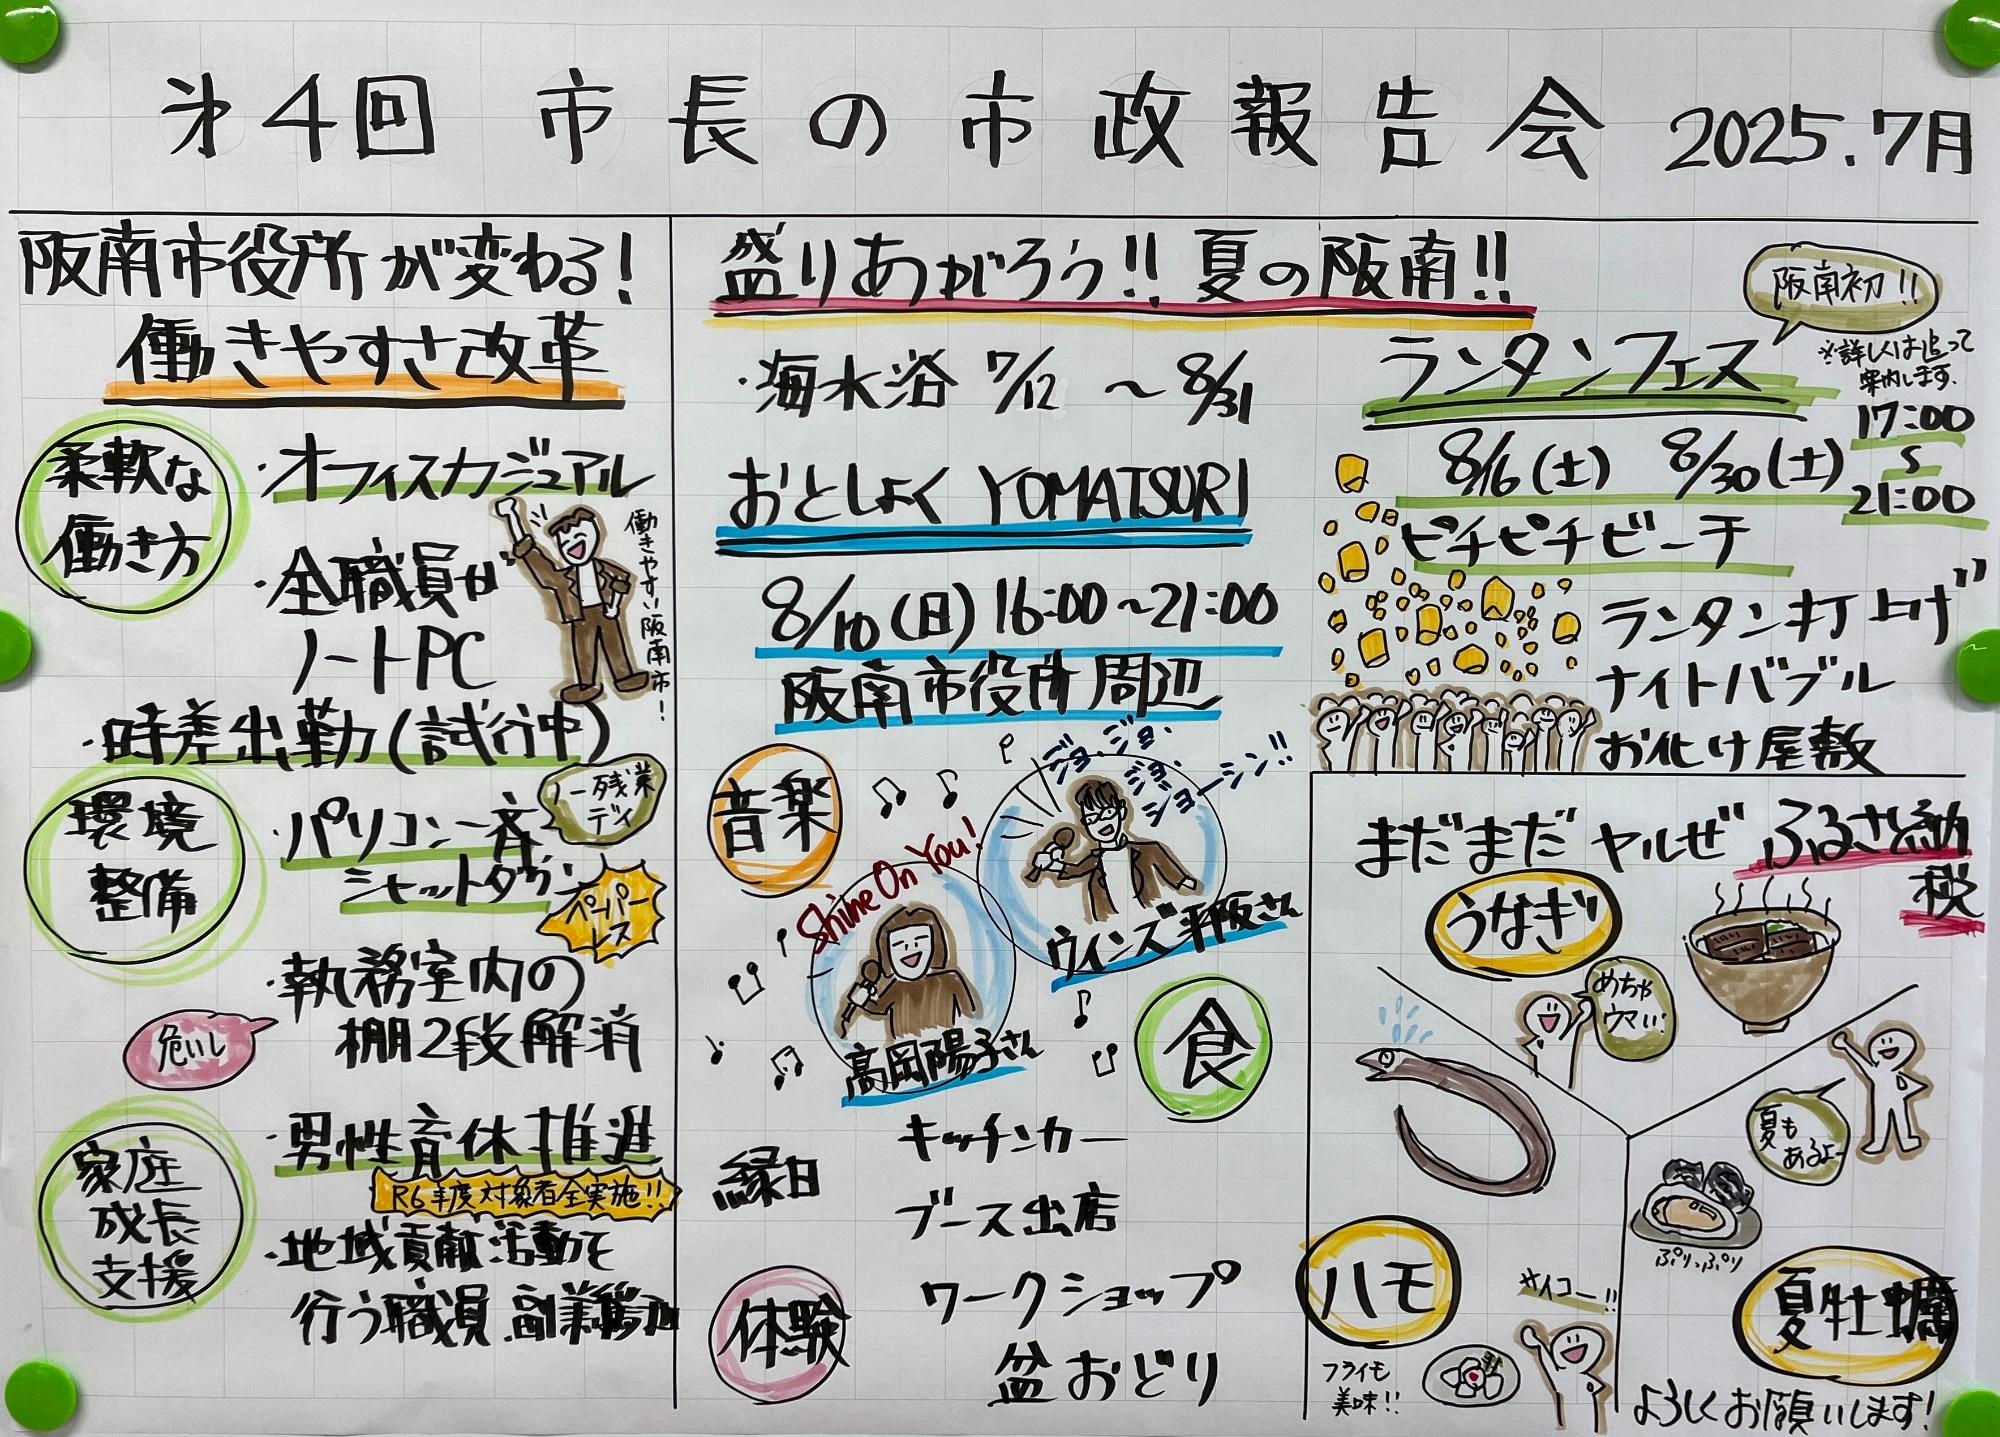 第4回 市長の市政報告会 2025.7月
阪南市役所が変わる!
働きやすさ改革
柔軟な
働き方
・オフィスカジュアル
・全職員が
ノートPC
働きやすい阪南市!
・時差出勤(試行中)
ノー残業
デイ
環境
整備
・パソコン一斉
シャットダウン
ペーパー
レス
・執務室内の
棚2段解消
危いし
家庭
成長
支援
・男性育休推進
R6年度対象者全実施!!
・地域貢献活動を
行う職員 副業
盛りあがろう!! 夏の阪南!!
・海水浴 7/12 〜 8/31
おとしょく YOMATSURI
8/10(日) 16:00〜21:00
阪南市役所周辺
音楽
ジョ、ジョ、
ジョ、
ジョーシン!!
Shine On You!
ウインズ平阪さん
高岡陽子さん
食
キッチンカー
縁日
ブース出店
ワークショップ
体験
盆おどり
阪南初!!
ランタンフェス
※詳しくは追って
案内します.
8/16(土) 8/30(土)
17:00
〜
21:00
ピチピチビーチ
ランタン打上げ
ナイトバブル
お化け屋敷
まだまだヤルゼ ふるさと納
税
うなぎ
めちゃ
ウマい!
夏も
あるよー
ぷりっぷり
夏牡蠣
ハモ
サイコー!!
フライも
美味!!
よろしくお願いします!